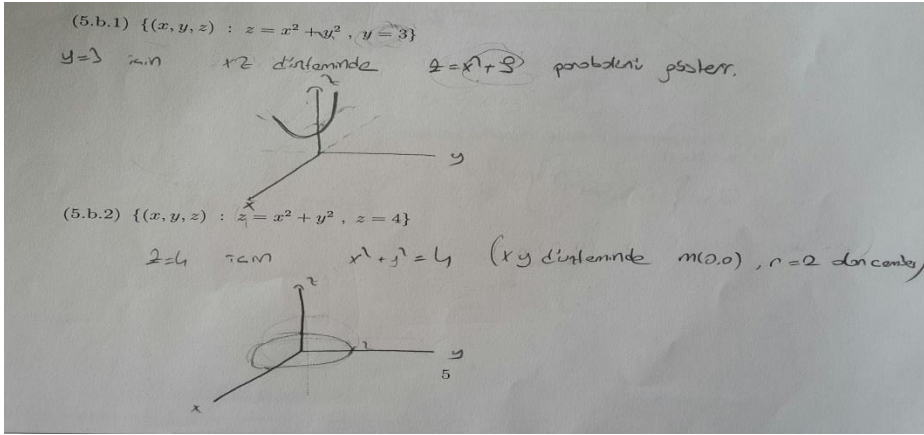 (5.b.1) {(x, y, z) : z = x² + y² , y = 3}
y=3 için xz düzleminde z = x² + 9 parabolünü gösterir.
z
y
x
(5.b.2) {(x, y, z) : z = x² + y² , z = 4}
z=4 için x² + y² = 4 (xy düzleminde m(0,0), r=2 olan çember)
z
2
y
x
5